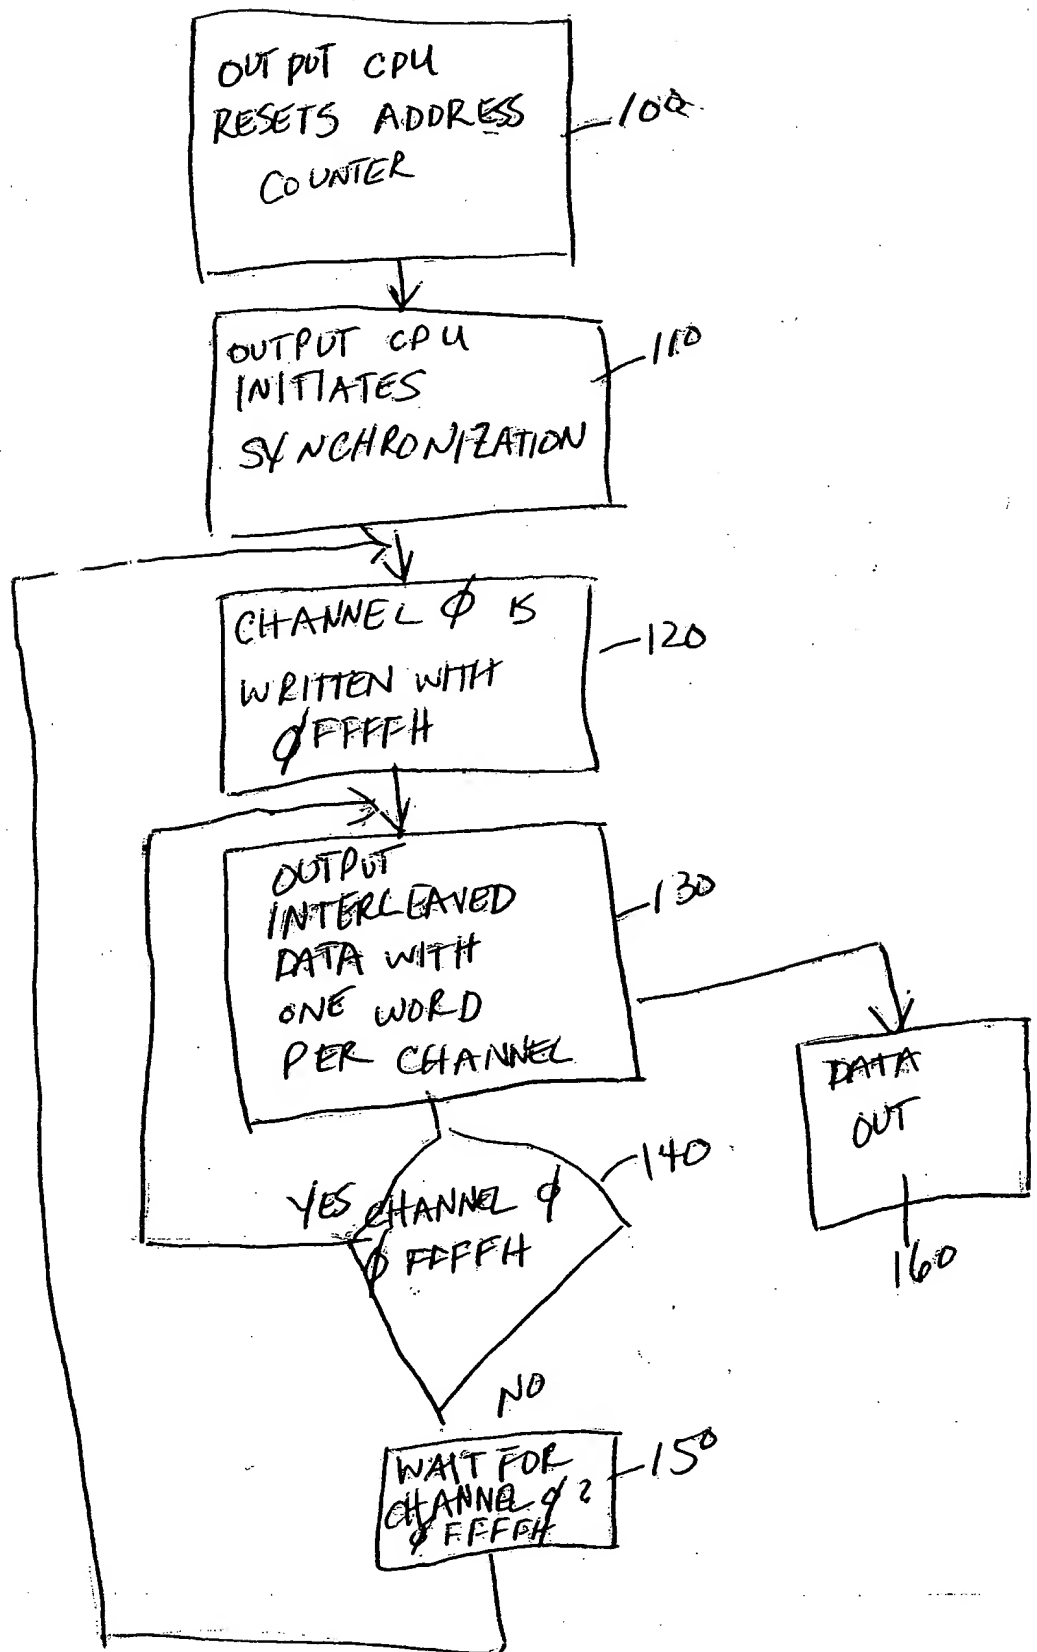 OUTPUT CPU
RESETS ADDRESS
COUNTER
100
OUTPUT CPU
INITIATES
SYNCHRONIZATION
110
CHANNEL Ø IS
WRITTEN WITH
ØFFFFH
120
OUTPUT
INTERLEAVED
DATA WITH
ONE WORD
PER CHANNEL
130
DATA
OUT
160
YES
CHANNEL Ø
Ø FFFFH
140
NO
WAIT FOR
CHANNEL Ø ?
Ø FFFFH
150